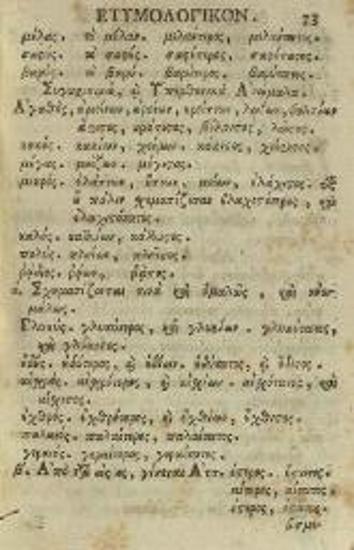 ΕΤΥΜΟΛΟΓΙΚΟΝ. 73
μέλας. τὸ μέλαν. μελάντερος, μελάντατος.
σαφής. τὸ σαφές. σαφέστερος, σαφέστατος.
βαρύς. τὸ βαρύ. βαρύτερος. βαρύτατος.
Συγκριτικὰ, ϗ Ὑπερθετικὰ Ἀνώμαλα.
Ἀγαθός, ἀμείνων, ἀρείων, κρείττων, λωΐων, βελτίων
ἄριστος, κράτιστος, βέλτιστος, λῷστος.
κακός. κακίων, χείρων. κάκιστος, χείριστος.
μέγας. μείζων. μέγιστος.
μικρός. ἐλάττων, ἥττων, μείων, ἐλάχιστος. ἐξ
οὗ πάλιν σχηματίζεται ἐλαχιστότερος, καὶ
ἐλαχιστότατος.
καλός. καλλίων, κάλλιστος.
πολύς. πλείων, πλεῖστος.
ῥᾴδιος. ῥᾴων, ῥᾷστος.
α. Σχηματίζονται τινὰ καὶ ὁμαλῶς, καὶ ἀνω-
μάλως.
Γλυκύς. γλυκύτερος, καὶ γλυκίων. γλυκύτατος,
καὶ γλύκιστος.
ἡδύς. ἡδύτερος, ϗ ἡδίων. ἡδύτατος, ϗ ἥδιστος.
αἰσχρός. αἰσχρότερος, ϗ αἰσχίων. αἰσχρότατος, καὶ
αἴσχιστος.
ἐχθρός. ἐχθρότερος, ϗ ἐχθίων, ἔχθιστος.
παλαιός. παλαίτερος, παλαίτατος.
γεραιός. γεραίτερος, γεραίτατος.
β. Ἀπὸ